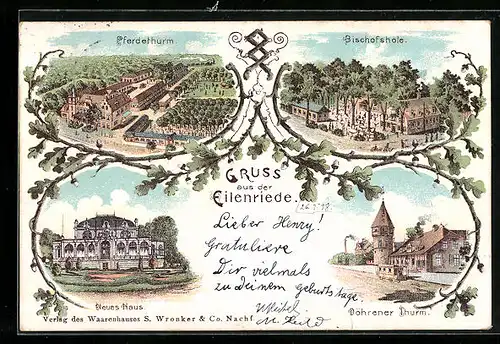 Pferdethurm.
Bischofshole.
GRUSS
aus der
Eilenriede.
Lieber Henry!
Gratuliere
Dir vielmals
zu Deinem Geburtstage.
Neues Haus
Döhrener Thurm.
Verlag des Waarenhauses S. Wronker & Co. Nachf.